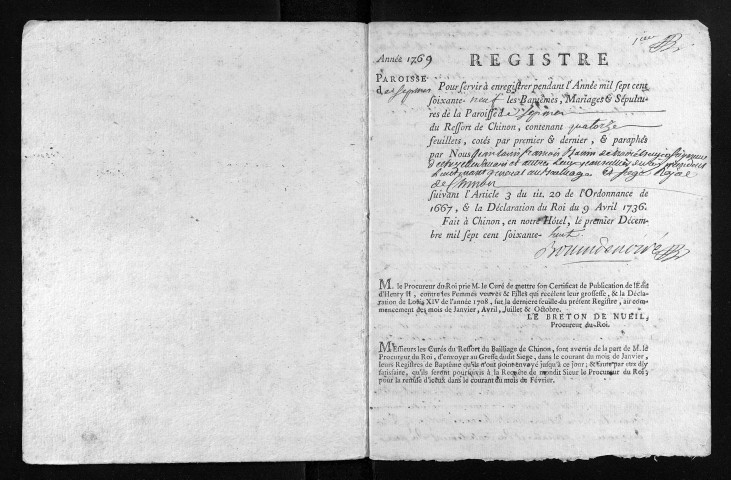 1er
Année 1769
REGISTRE
PAROISSE
de Sepmes
Pour servir à enregistrer pendant l'Année mil sept cent
soixante-neuf les Baptêmes, Mariages & Sépultu-
res de la Paroisse de Sepmes
du Ressort de Chinon, contenant quatorze
feuillets, cotés par premier & dernier, & paraphés
par Nous Jean Louis François
Lieutenant general au Bailliage et Siege Royal
de Chinon
suivant l'Article 3 du tit. 20 de l'Ordonnance de
1667, & la Déclaration du Roi du 9 Avril 1736.
Fait à Chinon, en notre Hôtel, le premier Décem-
bre mil sept cent soixante-huit
M. le Procureur du Roi prie M. le Curé de mettre son Certificat de Publication de l'Edit
d'Henry II, contre les Femmes veuves & Filles qui recélent leur grossesse, & la Décla-
ration de Louis XIV de l'année 1708, sur la derniere feuille du présent Registre, au com-
mencement des mois de Janvier, Avril, Juillet & Octobre.
LE BRETON DE NUEIL,
Procureur du Roi.
MEssieurs les Curés du Ressort du Bailliage de Chinon, sont avertis de la part de M. le
Procureur du Roi, d'envoyer au Greffe dudit Siege, dans le courant du mois de Janvier,
leurs Registres de Baptême qu'ils n'ont point envoyé jusqu'à ce jour; & faute par eux d'y
satisfaire, qu'ils seront poursuivis à la Requête de mondit Sieur le Procureur du Roi,
pour la remise d'iceux dans le courant du mois de Février.